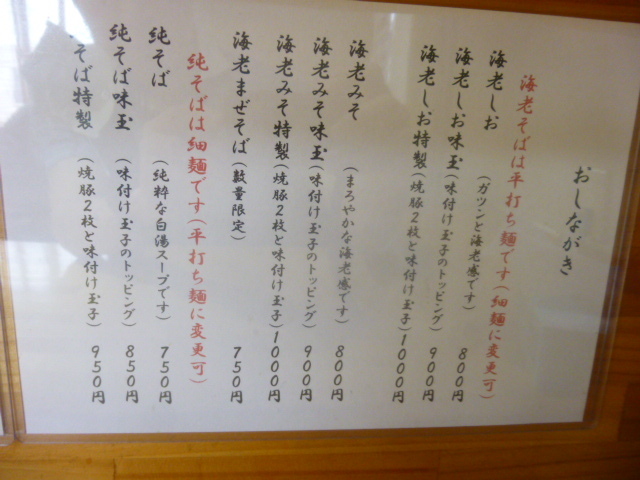 おしながき
海老そばは平打ち麺です(細麺に変更可)
海老しお (ガツンと海老感です) 800円
海老しお味玉(味付け玉子のトッピング) 900円
海老しお特製(焼豚2枚と味付け玉子)1000円
海老みそ (まろやかな海老感です) 800円
海老みそ味玉(味付け玉子のトッピング) 900円
海老みそ特製(焼豚2枚と味付け玉子)1000円
海老まぜそば(数量限定) 750円
純そばは細麺です(平打ち麺に変更可)
純そば (純粋な白湯スープです) 750円
純そば味玉 (味付け玉子のトッピング) 850円
そば特製 (焼豚2枚と味付け玉子) 950円